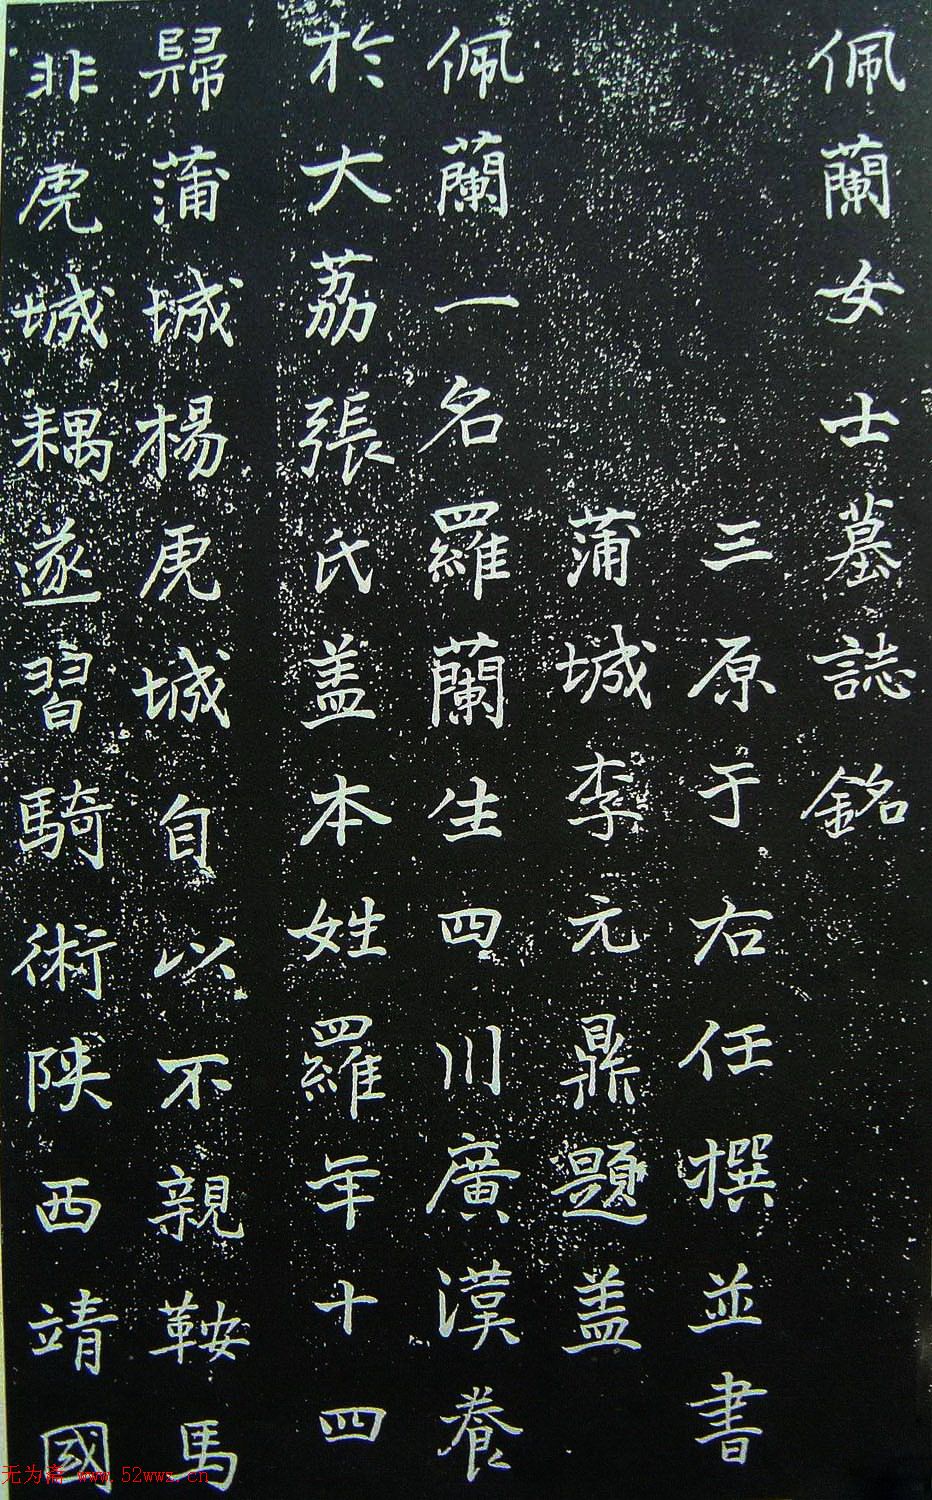 佩蘭女士墓誌銘
三原于右任撰並書
蒲城李元鼎題盖
佩蘭一名羅蘭生四川廣漢養
於大荔張氏盖本姓羅年十四
歸蒲城楊虎城自以不親鞍馬
非虎城耦遂習騎術陝西靖國
无为斋 www.52wwz.cn